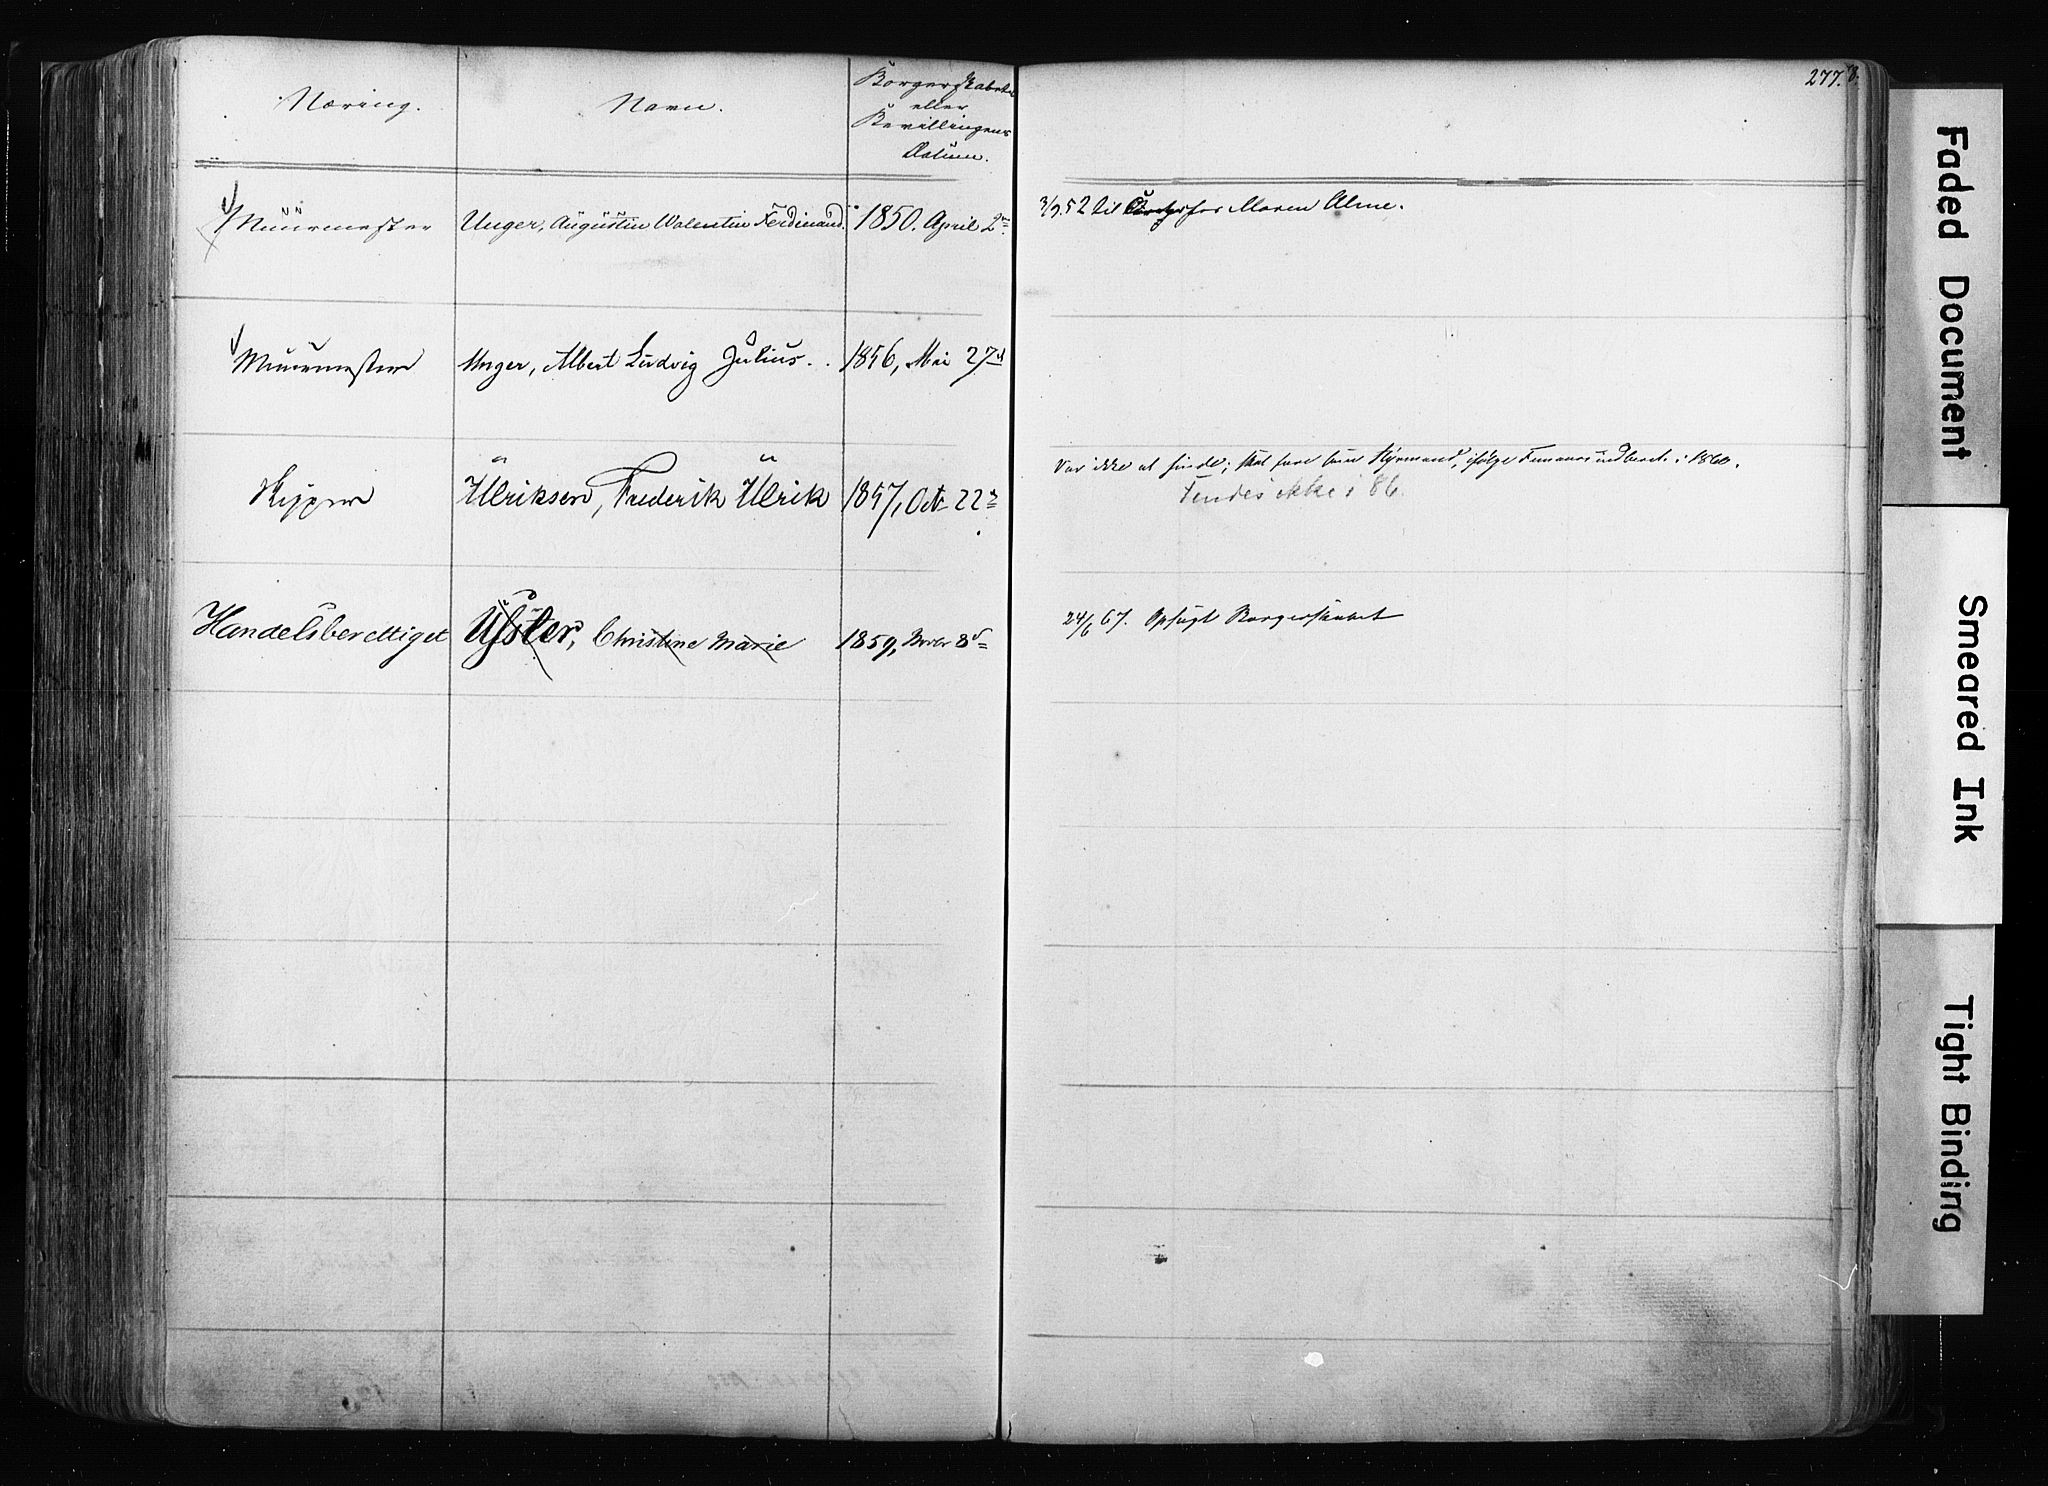 277.
Næring.
Navn.
Borgerskabets
eller
Bevillingens
Datum.
Muurmester
Unger, August​in Valentin Ferdinand.
1850. April 2den
3/9.52 til for Maren Alme.
Muurmester
Unger, Albert Ludvig Julius.
1856, Mai 27d
Skipper
Ulriksen, Frederik Ulrik
1857, Oct. 22d
Var ikke at finde; skal fare som Styrmand, ifølge i 1860.
Findes ikke i 86.
Handelsberettiget
Ulster, Christine Marie
1859, Novbr 8d
24/6 67. Opsagt Borgerskabet
Faded Document
Smeared Ink
Tight Binding